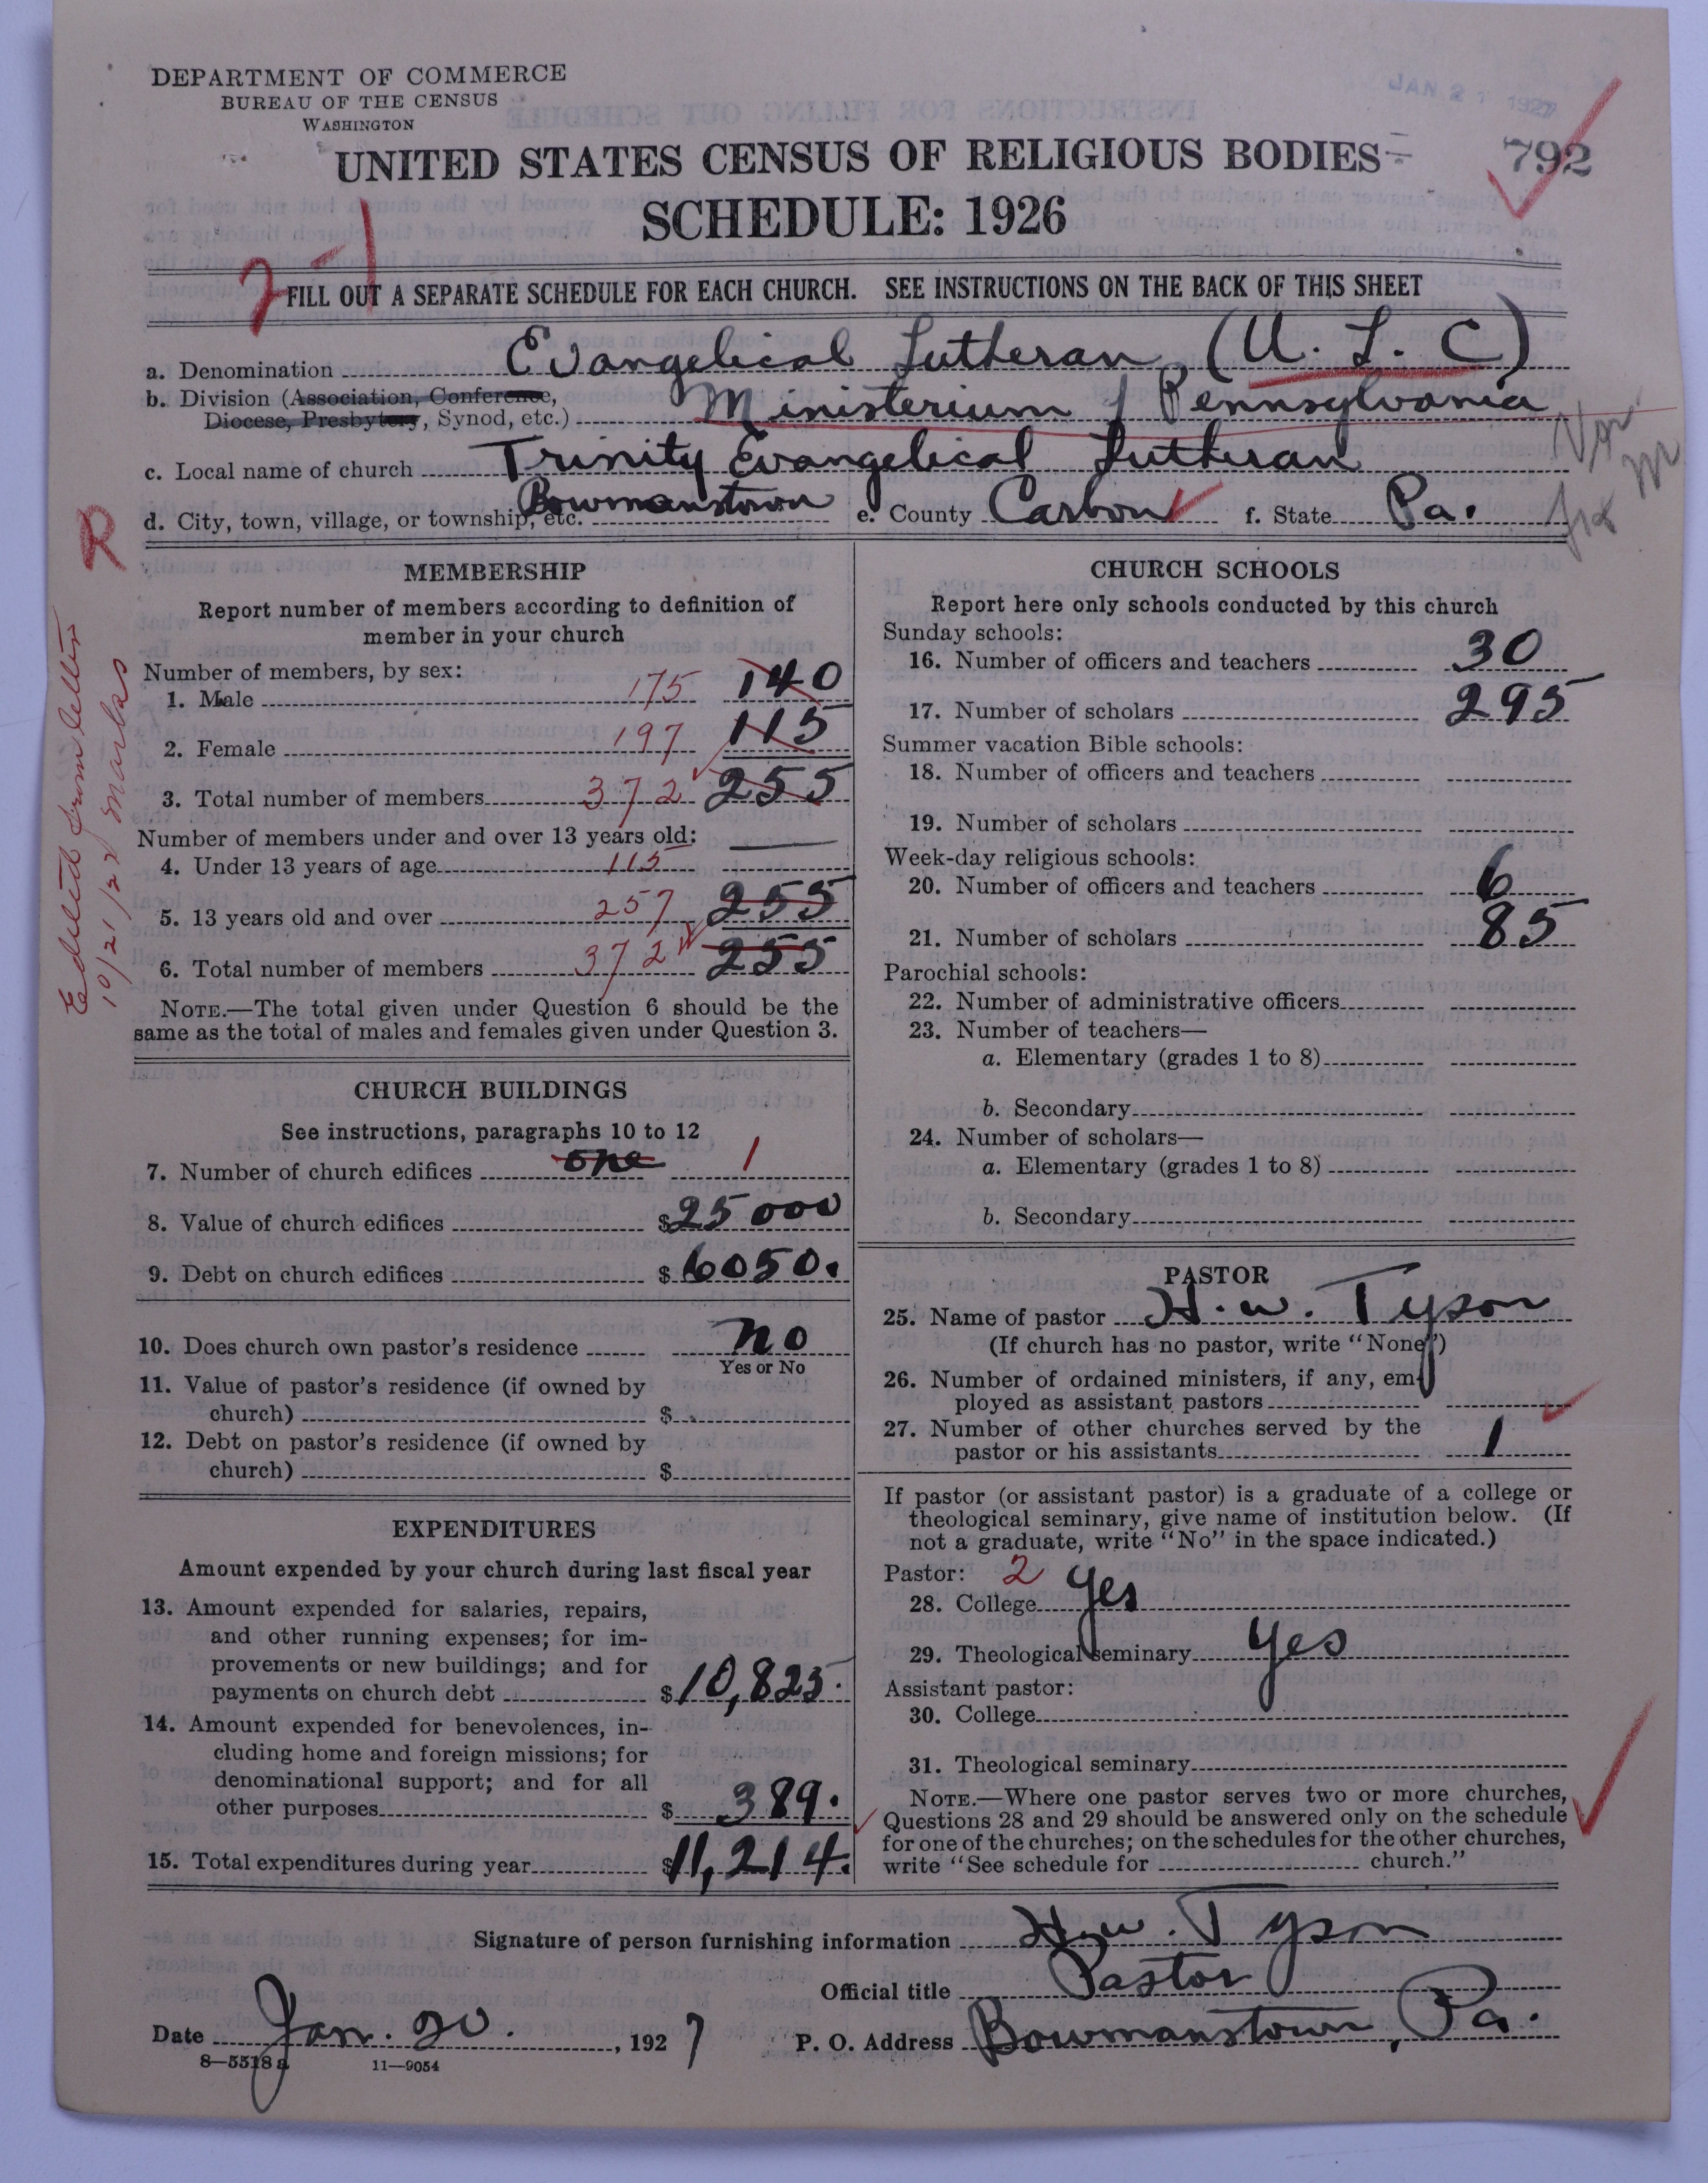 DEPARTMENT OF COMMERCE
BUREAU OF THE CENSUS
WASHINGTON
JAN 21 1927
UNITED STATES CENSUS OF RELIGIOUS BODIES
792
SCHEDULE: 1926
2-1
FILL OUT A SEPARATE SCHEDULE FOR EACH CHURCH. SEE INSTRUCTIONS ON THE BACK OF THIS SHEET
a. Denomination Evangelical Lutheran (U. L. C)
b. Division (Association, Conference, Diocese, Presbytery, Synod, etc.) Ministerium of Pennsylvania
c. Local name of church Trinity Evangelical Lutheran
d. City, town, village, or township, etc. Bowmanstown e. County Carbon f. State Pa.
R
10/21/27
MEMBERSHIP
Report number of members according to definition of
member in your church
Number of members, by sex:
1. Male 175 140
2. Female 197 115
3. Total number of members 372 255
Number of members under and over 13 years old:
4. Under 13 years of age 115
5. 13 years old and over 257 255
6. Total number of members 372 255
NOTE.—The total given under Question 6 should be the
same as the total of males and females given under Question 3.
CHURCH BUILDINGS
See instructions, paragraphs 10 to 12
7. Number of church edifices one 1
8. Value of church edifices $25000
9. Debt on church edifices $6050.
10. Does church own pastor's residence No
Yes or No
11. Value of pastor's residence (if owned by
church) $
12. Debt on pastor's residence (if owned by
church) $
EXPENDITURES
Amount expended by your church during last fiscal year
13. Amount expended for salaries, repairs,
and other running expenses; for im-
provements or new buildings; and for
payments on church debt $10,825.
14. Amount expended for benevolences, in-
cluding home and foreign missions; for
denominational support; and for all
other purposes $389.
15. Total expenditures during year $11,214.
CHURCH SCHOOLS
Report here only schools conducted by this church
Sunday schools:
16. Number of officers and teachers 30
17. Number of scholars 295
Summer vacation Bible schools:
18. Number of officers and teachers
19. Number of scholars
Week-day religious schools:
20. Number of officers and teachers 6
21. Number of scholars 85
Parochial schools:
22. Number of administrative officers
23. Number of teachers—
a. Elementary (grades 1 to 8)
b. Secondary
24. Number of scholars—
a. Elementary (grades 1 to 8)
b. Secondary
PASTOR
25. Name of pastor H. W. Tyson
(If church has no pastor, write "None")
26. Number of ordained ministers, if any, em-
ployed as assistant pastors
27. Number of other churches served by the
pastor or his assistants 1
If pastor (or assistant pastor) is a graduate of a college or
theological seminary, give name of institution below. (If
not a graduate, write "No" in the space indicated.)
Pastor: 2
28. College yes
29. Theological seminary yes
Assistant pastor:
30. College
31. Theological seminary
NOTE.—Where one pastor serves two or more churches,
Questions 28 and 29 should be answered only on the schedule
for one of the churches; on the schedules for the other churches,
write "See schedule for church."
Signature of person furnishing information H. W. Tyson
Official title Pastor
Date Jan. 20. , 1927 P. O. Address Bowmanstown, Pa.
8—5518 a 11—9054